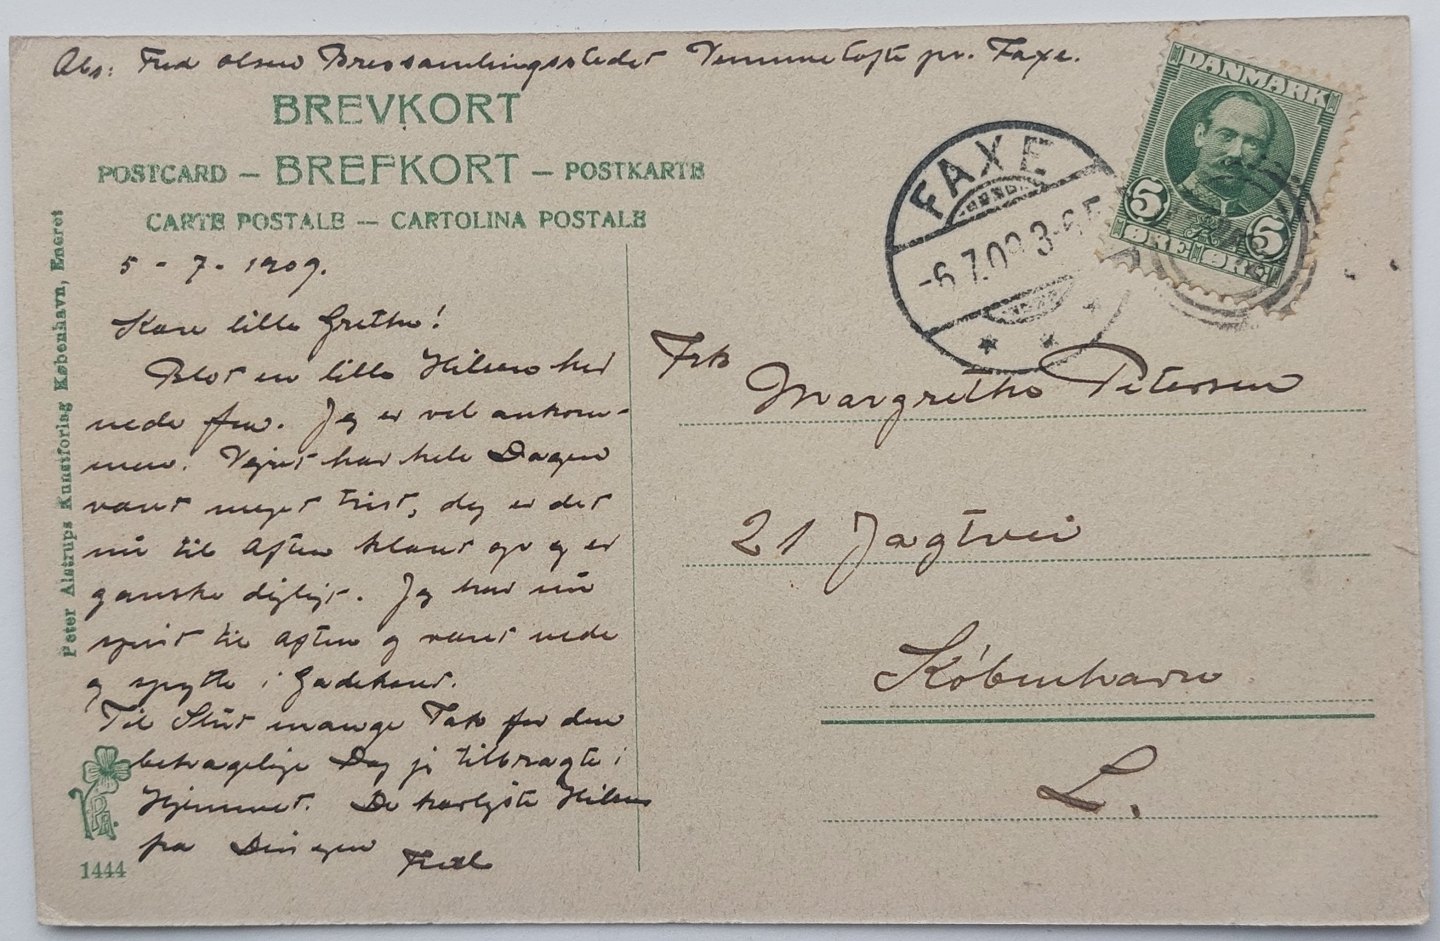 Abs: Fred Olsen Brevsamlingsstedet Vemmetofte pr. Faxe.
BREVKORT
POSTCARD — BREFKORT — POSTKARTE
CARTE POSTALE — CARTOLINA POSTALE
5 - 7 - 1909.
Kære lille Grethe!
Blot en lille Hilsen her
nede fra. Jeg er vel ankom-
men. Vejret har hele Dagen
været meget trist, dog er det
nu til Aften klaret op og er
ganske dejligt. Jeg har nu
spist til Aften og været nede
og spytte i Gadekæret.
Til Slut mange Tak for den
behagelige Dag jeg tilbragte i
Hjemmet. De kærligste Hilsner
fra Din egen Fred
Peter Alstrups Kunstforlag København, Eneret
PA
1444
DANMARK
5 5
ØRE ØRE
FAXE
-6.7.09 3-6 E
Frk
Margrethe Petersen
21 Jagtvei
København
L.